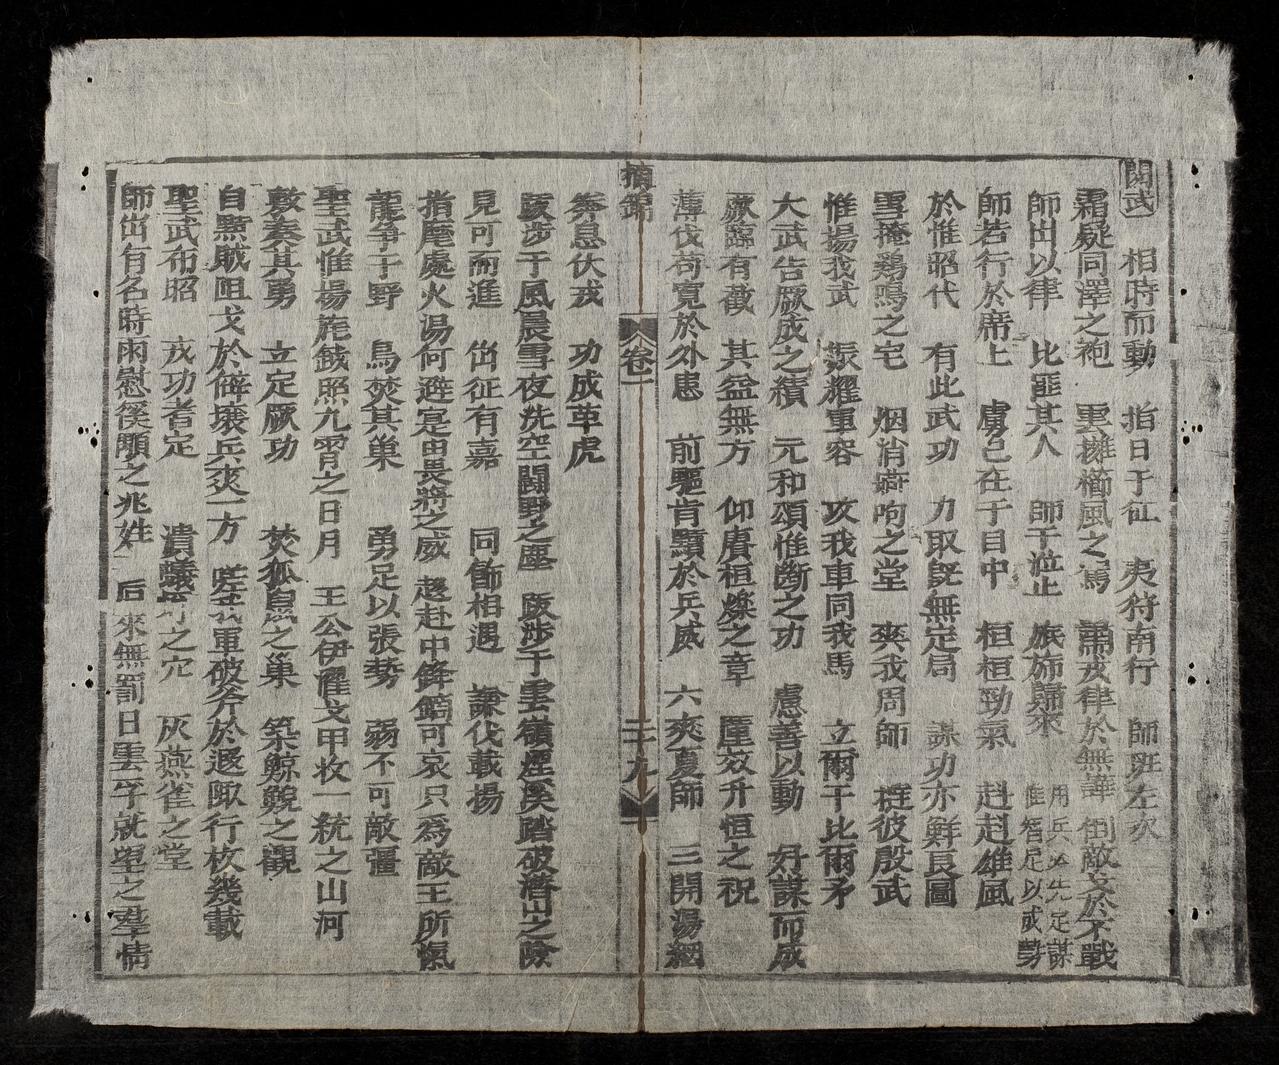 閱武 相時而動 指日于征 夷狩南行 師班左次
霜凝同澤之袍 雲擁櫛風之 戎律於無譁 倒敵戈於不戰
師出以律 比匪其人 師干涖止 旅斾歸來 用兵必先定謀 惟智足以成勢
師若行於席上 虜已在于目中 桓桓勁氣 赳赳雄風
於惟昭代 有此武功 力取旣無定局 謀功亦鮮良圖
雪掩鷄鳴之宅 烟消 呴之堂 爽我周師 殷武
惟揚我武 振耀重容 攻我車同我馬 立爾干比爾矛
大武告厥成之績 元和頌惟斷之功 慮善以動 好謀而成
厥臨有 其益無方 仰賡桓燦之章 效升恒之祝
薄伐苟寬於外患 前驅肯顯於兵威 六爽夏師 三開湯網
摘錦 卷一 二十九
奔息伏戎 功成革虎
跋涉于風晨雪夜洗空鬪野之塵 跋涉于雲嶺煙溪踏破濟山之險
見可而進 出征有嘉 同飾相遇 謙伐載揚
指麾處火湯何避寔由畏將之威 趨赴中鋒鏑可哀只爲敵王所愾
龍爭于野 鳥焚其巢 勇足以張勢 弱不可敵彊
聖武惟揚旄鉞照九霄之日月 王公伊濯戈甲收一統之山河
敷奏其勇 立定厥功 焚狐鼠之巢 築鯨鯢之觀
自點賊咀戈於僻壤兵爽一方 嗟我軍破斧於遐陬行枚幾載
聖武布昭 戎功耆定 潰蟻 之穴 灰燕雀之堂
師出有名時雨慰徯顒之兆姓 后來無罰日雲孚就望之羣情